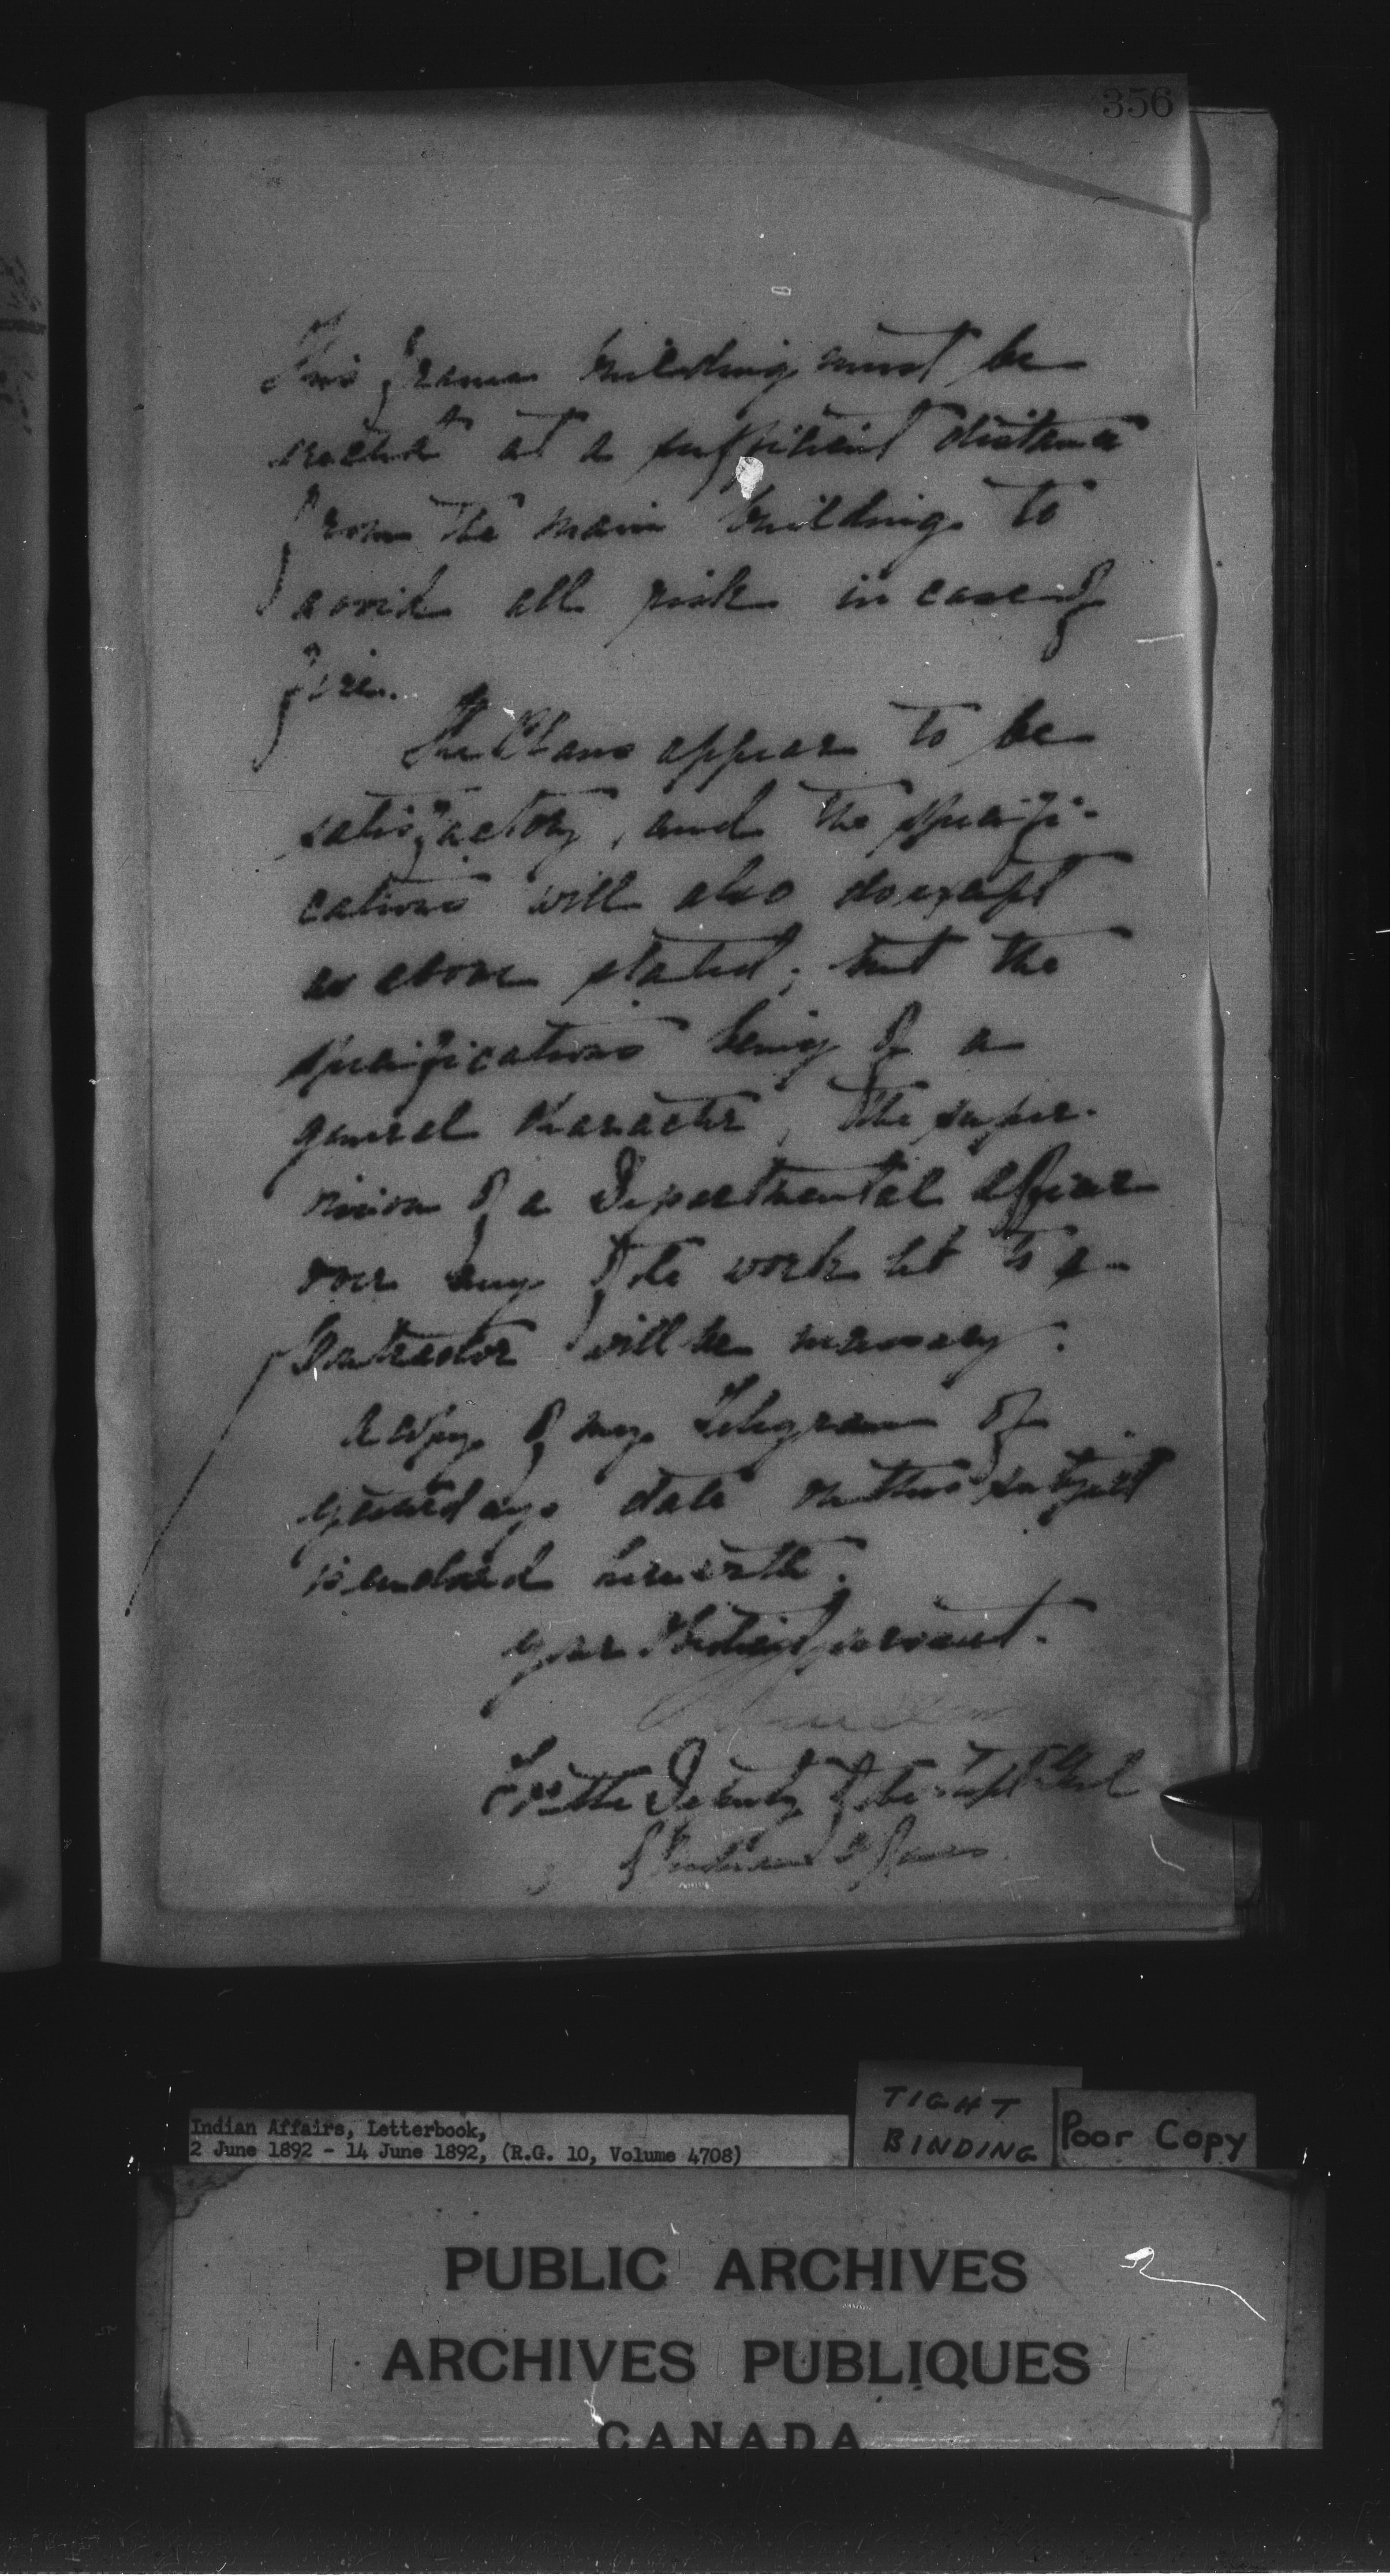 356
This frame building must be
erected at a sufficient distance
from the main building to
avoid all risk in case of
fire.
The Plans appear to be
satisfactory, and the specifi-
cations will also do except
as above stated; but the
specifications being of a
general character, the super-
vision of a Departmental Officer
over any of the work let to a
Contractor will be necessary.
A copy of my telegram of
yesterdays date on this subject
is enclosed herewith.
Your Obedient servant.
For the Deputy of the Supt Genl
of Indian Affairs
Indian Affairs, Letterbook,
2 June 1892 - 14 June 1892, (R.G. 10, Volume 4708)
TIGHT
BINDING
Poor Copy
PUBLIC ARCHIVES
ARCHIVES PUBLIQUES
CANADA